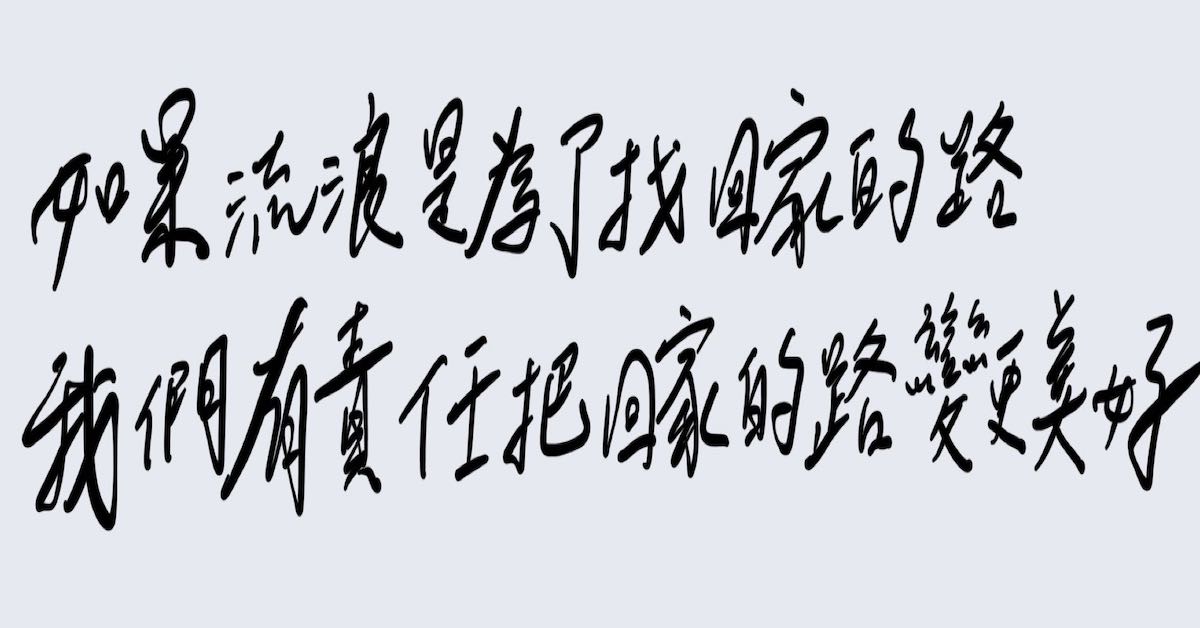 如果流浪是為了找回家的路
我們有責任把回家的路變更美好